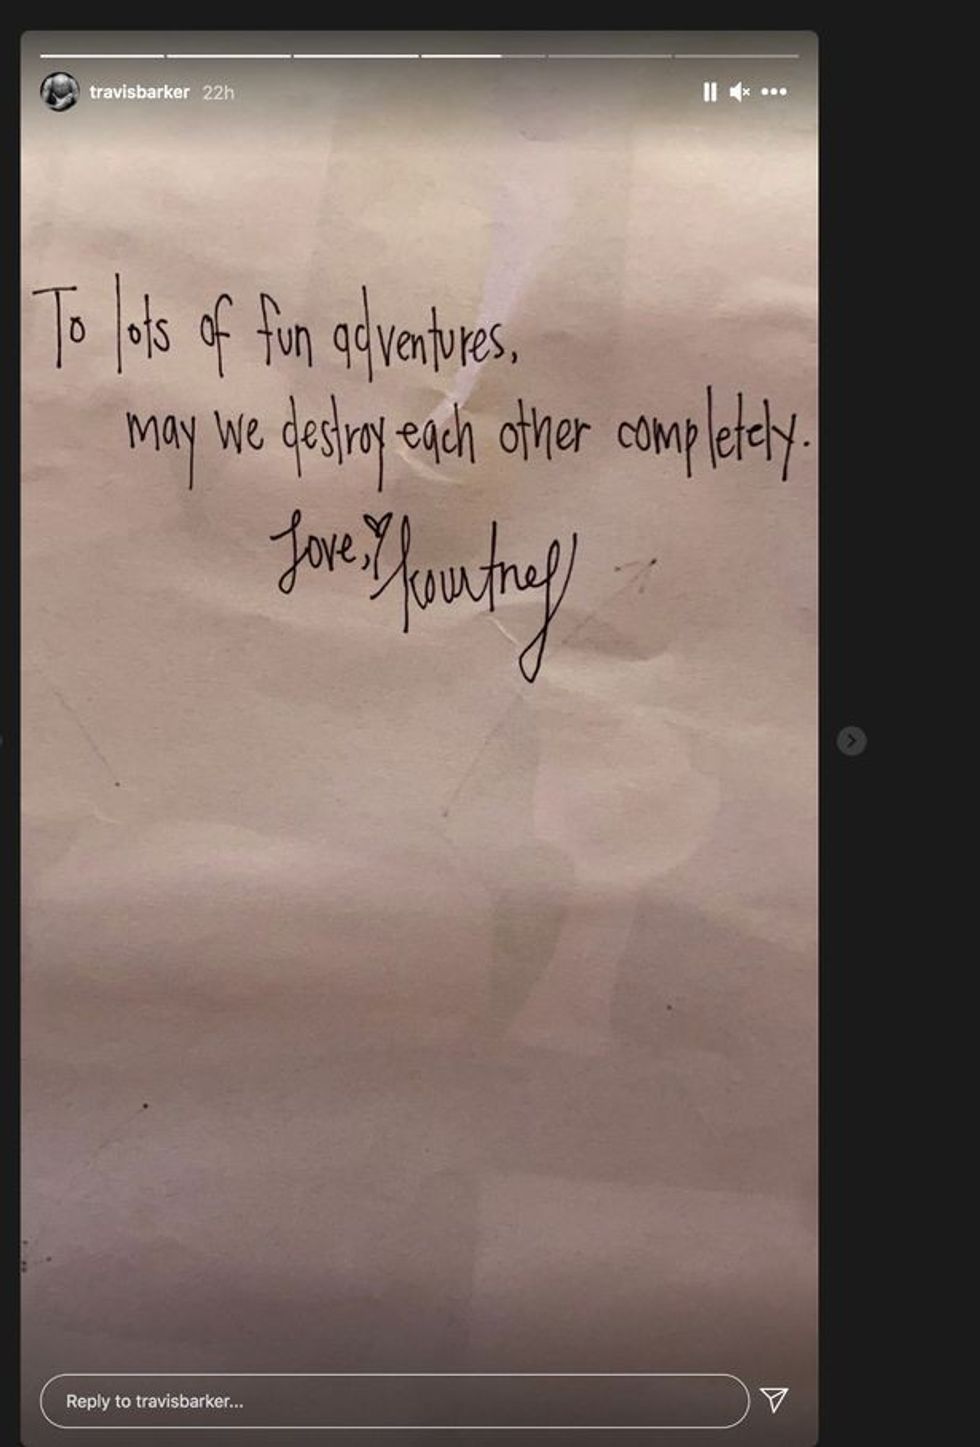 travisbarker 22h
To lots of fun adventures,
may we destroy each other completely.
Love, kourtney
Reply to travisbarker...